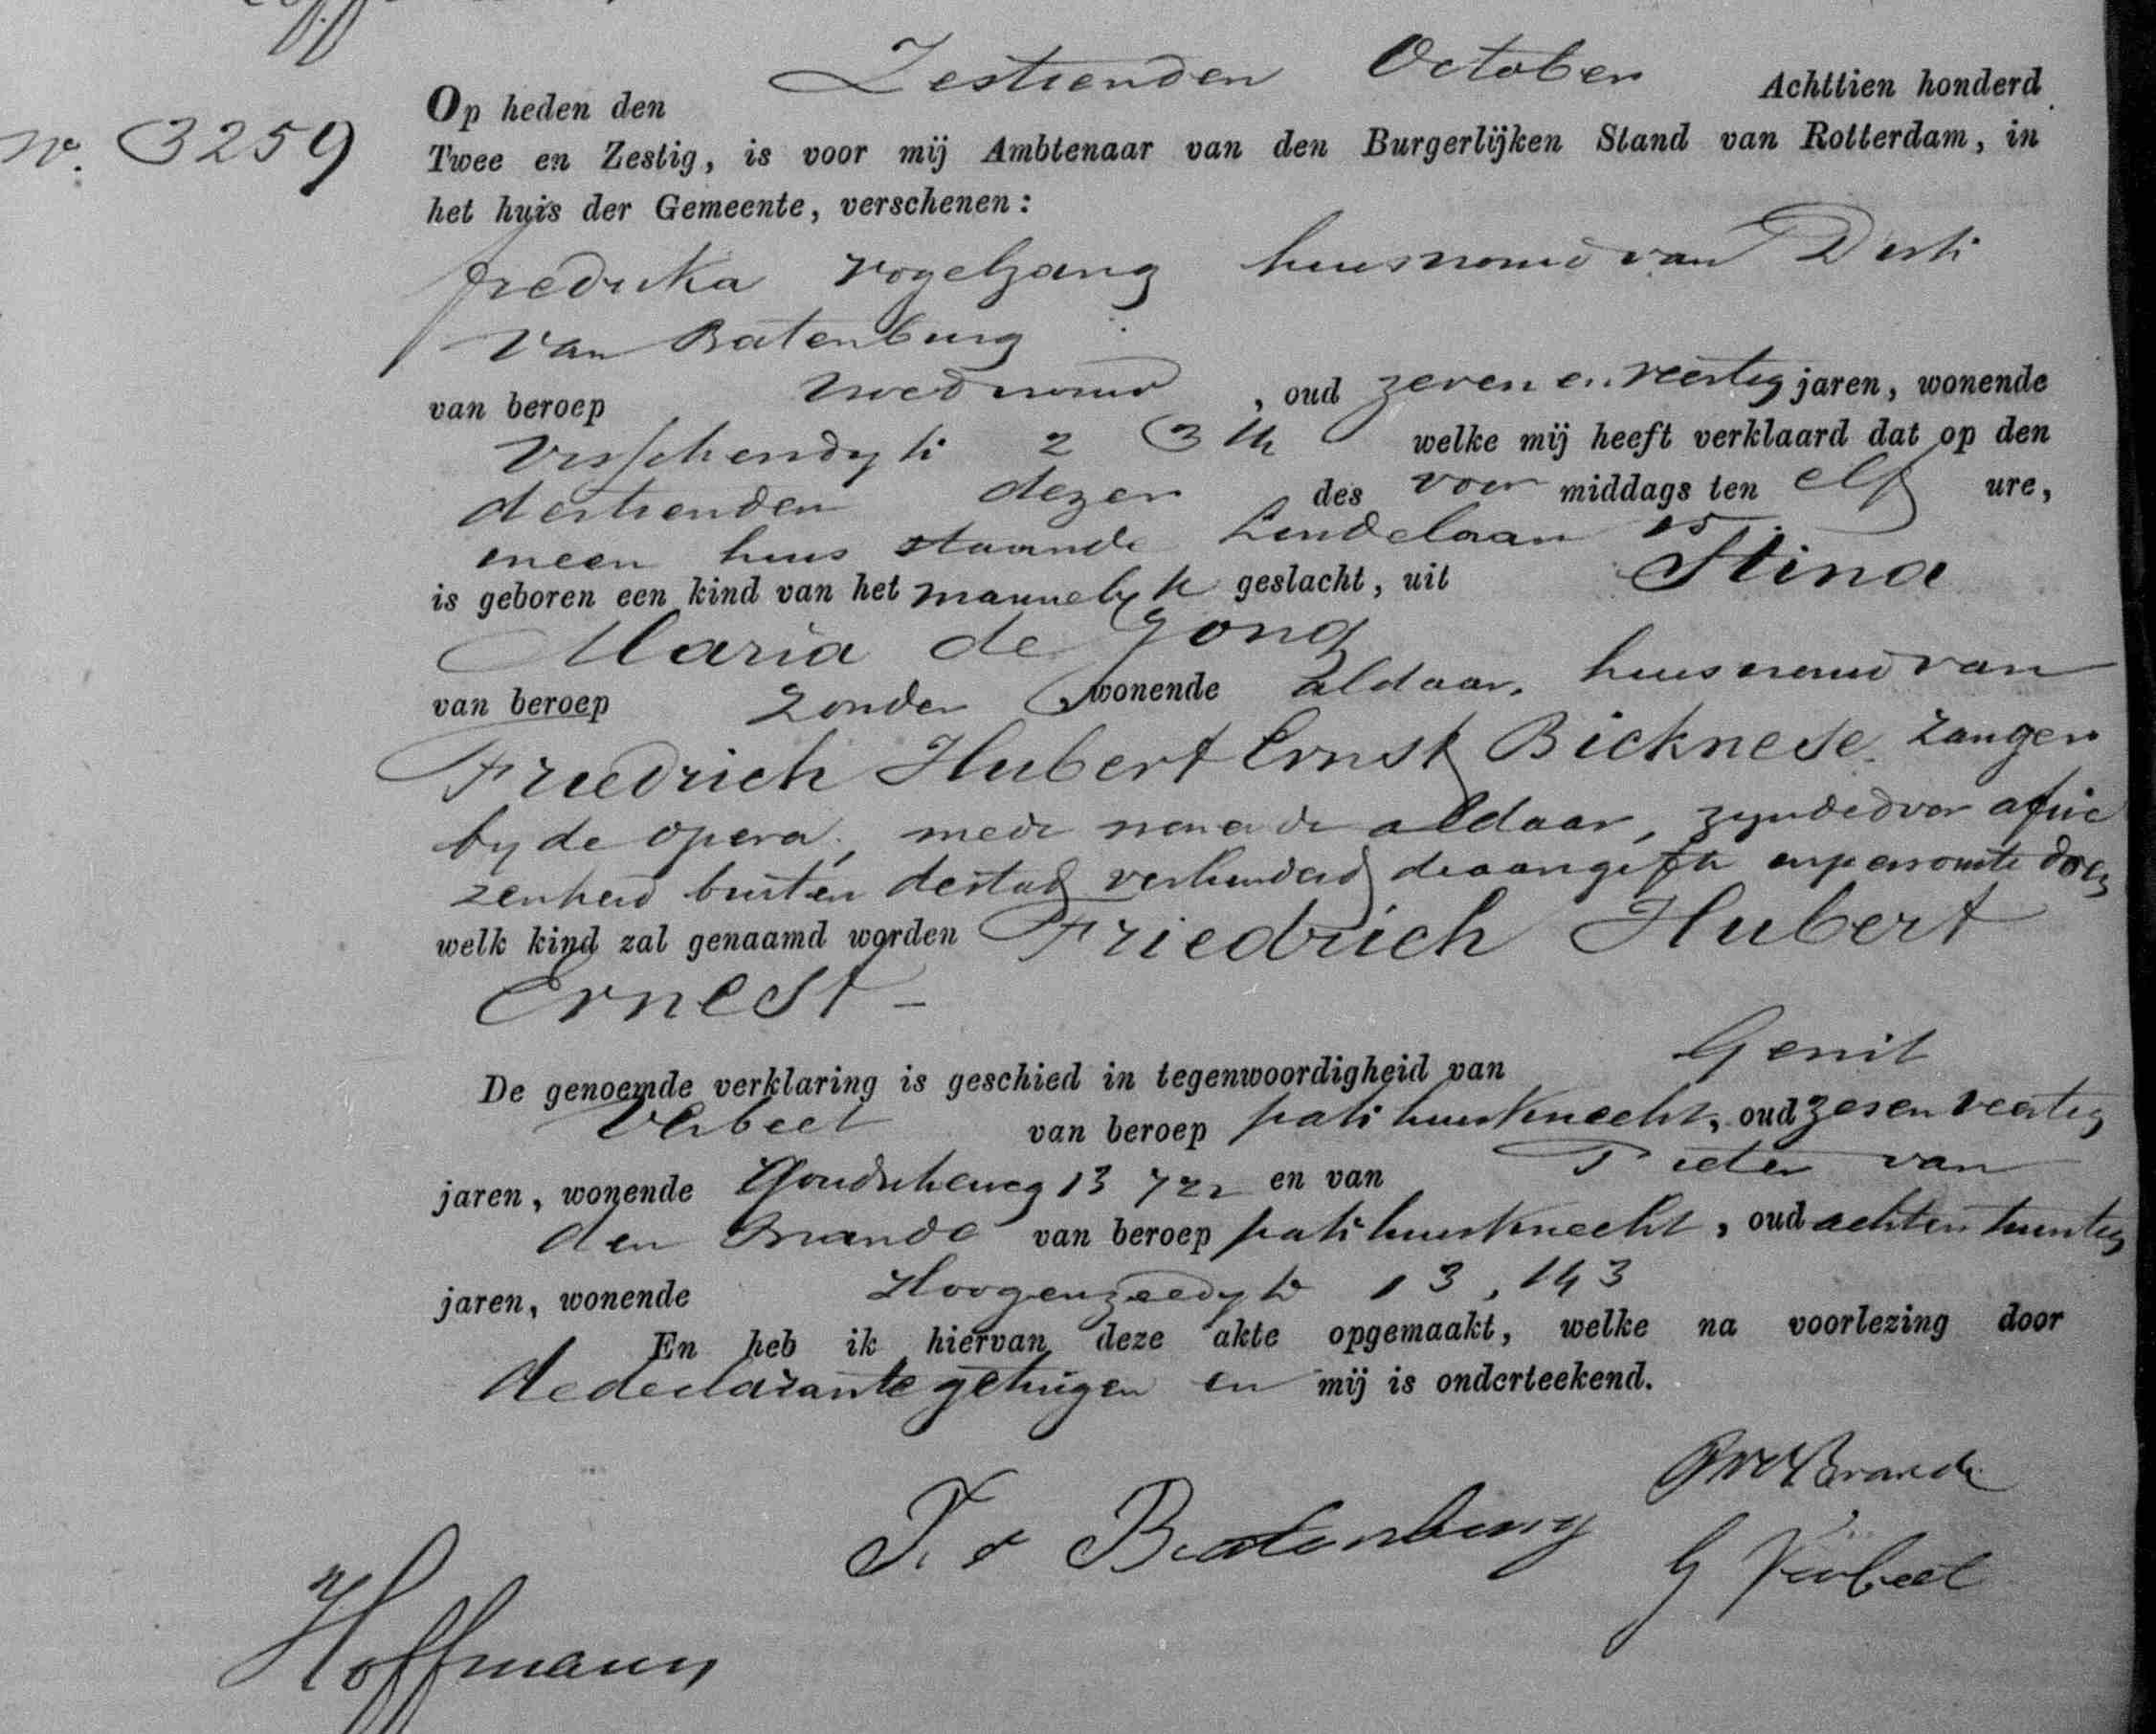 No. 3259
Op heden den Zestienden October Achttien honderd
Twee en Zestig, is voor mij Ambtenaar van den Burgerlijken Stand van Rotterdam, in
het huis der Gemeente, verschenen:
Fredrika Vogelzang huisvrouw van Dirk
van Batenburg
van beroep vroedvrouw, oud zeven en veertig jaren, wonende
Visschersdijk 2 welke mij heeft verklaard dat op den
dertienden dezer des voor middags ten elf ure,
in een huis staande Lindelaan 15
is geboren een kind van het mannelijk geslacht, uit Stina
Maria de Jong
van beroep zonder wonende aldaar, huisvrouw van
Friedrich Hubert Ernst Bicknese zanger
by de opera, mede wonende aldaar, zynde door afwe
zenheid buiten de stad verhinderd de aangifte in persoon te doen
welk kind zal genaamd worden Friedrich Hubert
Ernest -
De genoemde verklaring is geschied in tegenwoordigheid van Gerrit
Verbeet van beroep pakhuisknecht, oud zes en veertig
jaren, wonende Goudscheweg 13 722 en van Pieter van
den Brande van beroep pakhuisknecht, oud acht en twintig
jaren, wonende Hoogenzeedyk 13, 143
En heb ik hiervan deze akte opgemaakt, welke na voorlezing door
de declarante getuigen en mij is onderteekend.
PvdBrande
F. v Batenburg
G Verbeet
Hoffmann